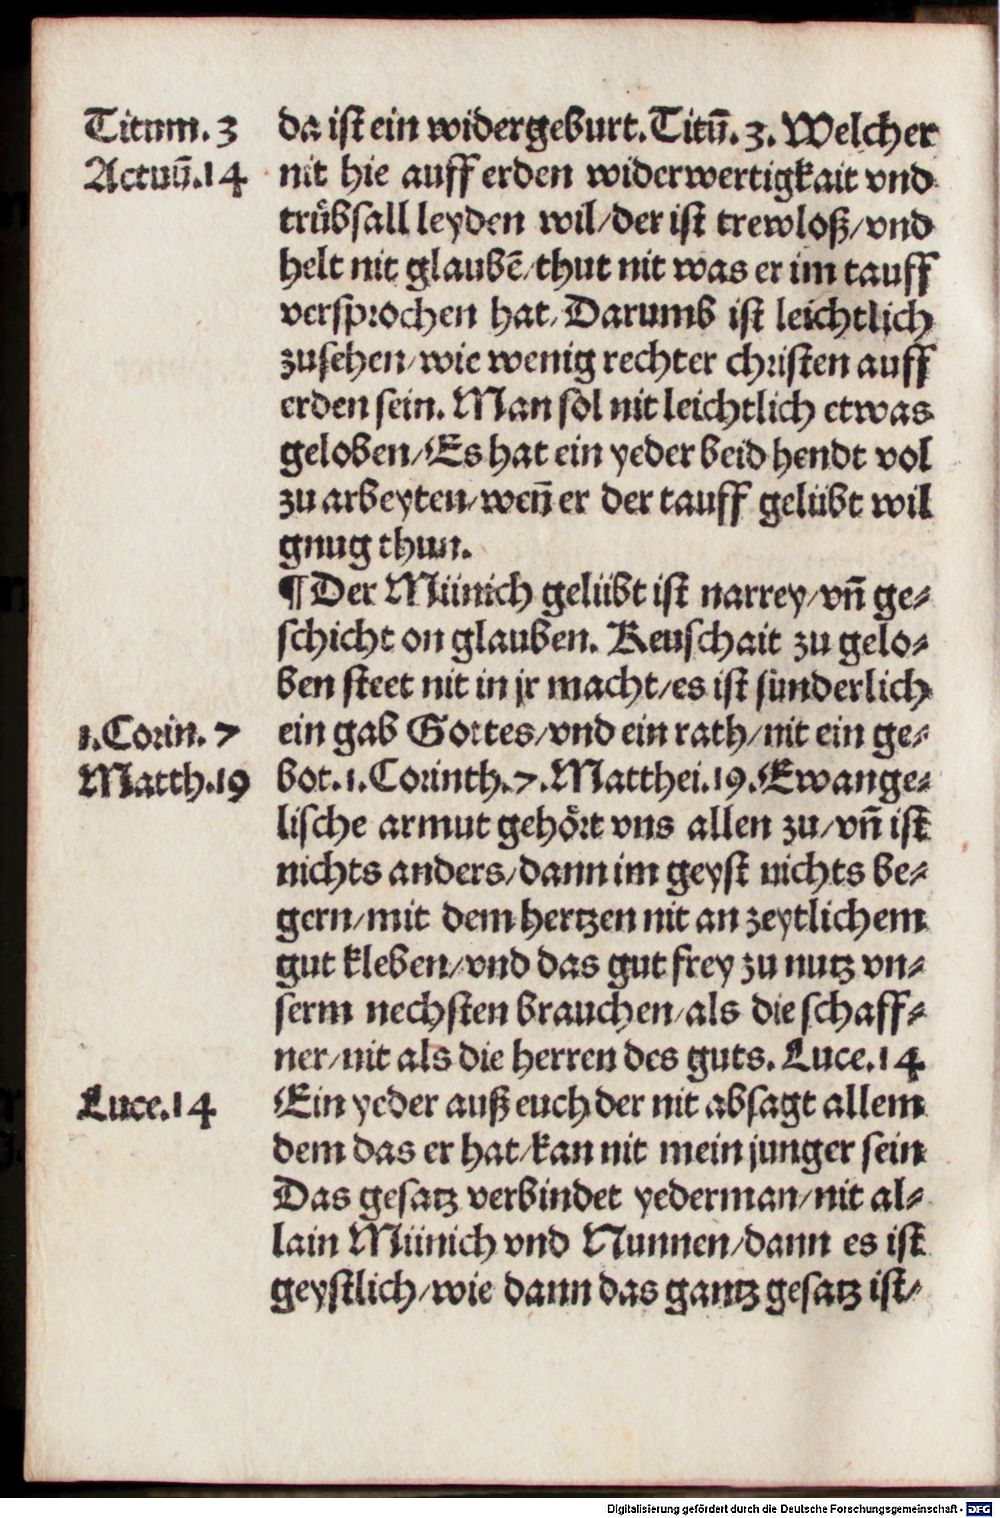 Titum. 3
Actuū. 14
da ist ein widergeburt. Titū. 3. Welcher
nit hie auff erden widerwertigkait vnd
trübsall leyden wil/der ist trewloß/vnd
helt nit glaubē/thut nit was er im tauff
versprochen hat/Darumb ist leichtlich
zusehen/wie wenig rechter christen auff
erden sein. Man sol nit leichtlich etwas
geloben/Es hat ein yeder beid hendt vol
zu arbeyten/weñ er der tauff gelübt wil
gnug thun.
¶ Der Münich gelübt ist narrey/vñ ge⸗
schicht on glauben. Keuschait zu gelo⸗
ben steet nit in jr macht/es ist sünderlich
1. Corin. 7
ein gab Gottes/vnd ein rath/nit ein ge⸗
Matth. 19
bot. 1. Corinth. 7. Matthei. 19. Ewange⸗
lische armut gehört vns allen zu/vñ ist
nichts anders/dann im geyst nichts be⸗
gern/mit dem hertzen nit an zeytlichem
gut kleben/vnd das gut frey zu nutz vn⸗
serm nechsten brauchen/als die schaff⸗
ner/nit als die herren des guts. Luce. 14
Luce. 14
Ein yeder auß euch der nit absagt allem
dem das er hat/kan nit mein junger sein
Das gesatz verbindet yederman/nit al⸗
lain Münich vnd Nunnen/dann es ist
geystlich/wie dann das gantz gesatz ist/
Digitalisierung gefördert durch die Deutsche Forschungsgemeinschaft - DFG